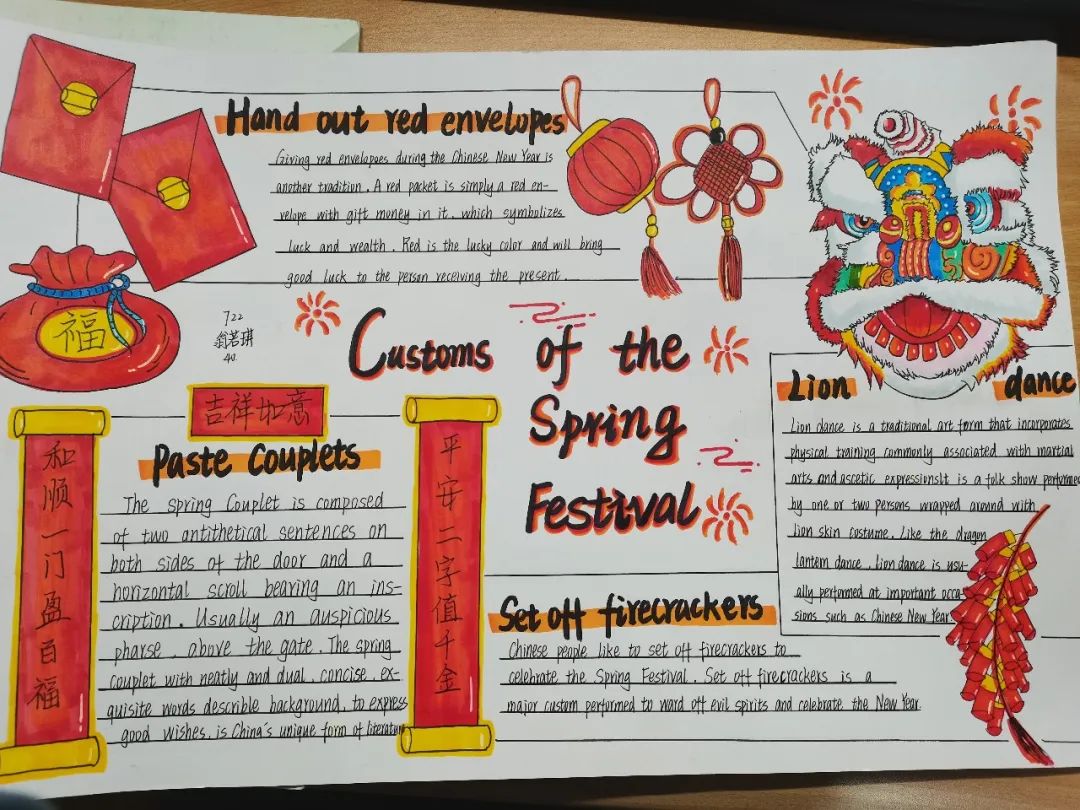 Hand out red envelopes
Giving red envelopoes during the Chinese New Year is
another tradition. A red packet is simply a red en-
velope with gift money in it. which symbolizes
luck and wealth. Red is the lucky color and will bring
good luck to the person receiving the present.
福
722
翁若琪
40
Customs of the
Spring
Festival
吉祥如意
和顺一门盈百福
平安二字值千金
Paste Couplets
The spring Couplet is composed
of two antithetical sentences on
both sides of the door and a
horizontal scroll bearing an ins-
cription. Usually an auspicious
pharse . above the gate. The spring
couplet with neatly and dual. concise. ex-
quisite words describle background. to express
good wishes. is China's unique form of literature
Lion dance
Lion dance is a traditional art form that incorporates
physical training commonly associated with martial
arts and ascetic expressionsIt is a folk show performed
by one or two persons wrapped around with
lion skin costume. Like the dragon
lantern dance. Lion dance is usu-
ally performed at important occa-
sions such as Chinese New Year
Set off firecrackers
Chinese people like to set off firecrackers to
celebrate the Spring Festival. Set off firecrackers is a
major custom performed to ward off evil spirits and celebrate the New Year.